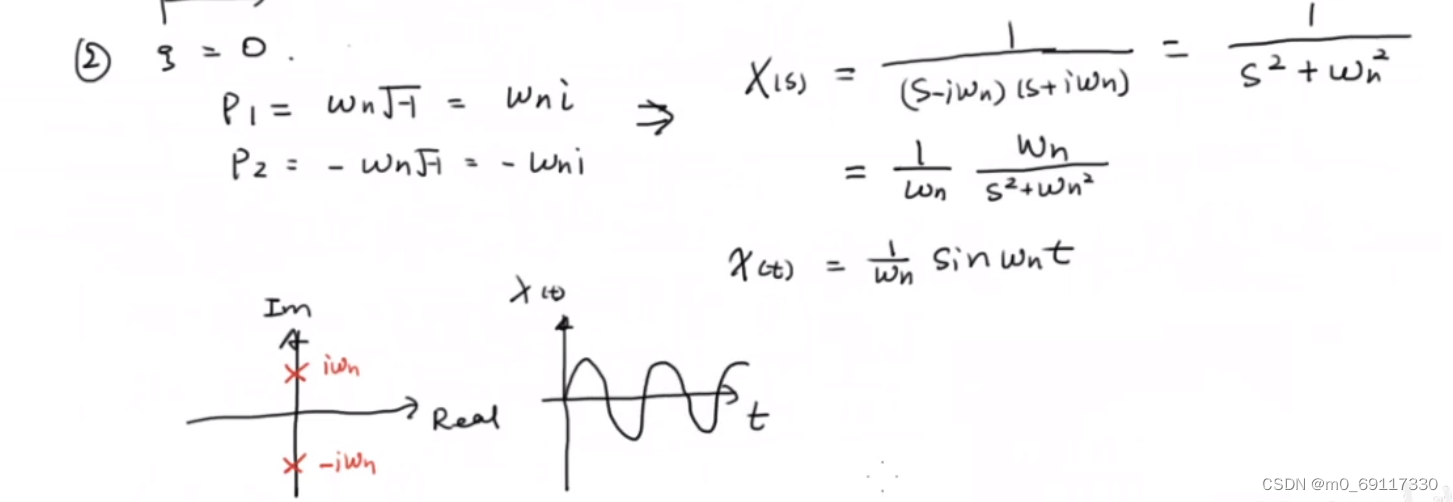 ② ξ = 0 .
P₁ = ωn√-1 = ωn i
P₂ = - ωn√-1 = - ωn i
⇒
X(s) = 1/((S-iωn)(S+iωn)) = 1/(S²+ωn²)
= 1/ωn ωn/(S²+ωn²)
x(t) = 1/ωn sin ωn t
Im
iωn
Real
-iωn
x(t)
t
CSDN @m0_69117330